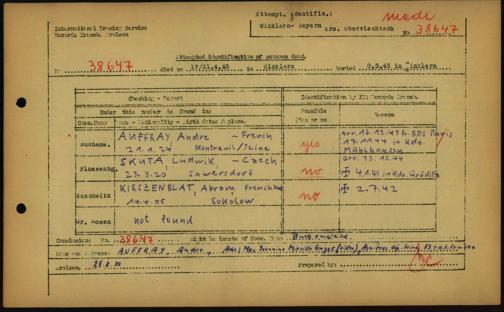 Attempt. Identific.:
made
International Tracing Service
Winklarn - Bayern
Records Branch. Arolsen
Krs. Oberviechtach
No 38647
Attempted identification of unknown dead.
No. 38647 died on 19/21.4.45 in Winklarn buried 8.5.45 in Winklarn
Checking - Report
Identification by ITS Records Branch.
Under this number is found in:
Possible
Reason
Conc.Camp Name - Nationality - birth dates & place.
Yes or no.
Buchenw. AUFFRAY Andre - French
21.1.24 Montreuil/Seine
yes
arr. 16.12.43 fr. BDS Paris
17.11.44 in Kdo.
Mühlhausen
Flossenbg. SKUTA Ludwik - Czech
23.3.20
no
arr. 13.12.44
✠ 4.1.45 in Kdo. Gröditz
Auschwitz KIRSZENBLAT, Abram Frenchman
14.4.05 Sokolow
no
✠ 2.7.42
Gr. Rosen not found
Conclusion: No. 38647 might be inmate of Conc. Camp Buchenwald
AUFFRAY, André,
Arolsen, 28.8.50
Prepared by: